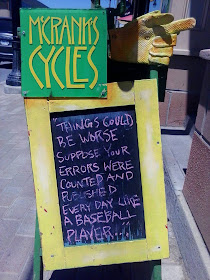 MYRANKS
CYCLES
THINGS COULD
BE WORSE.
SUPPOSE YOUR
ERRORS WERE
COUNTED AND
PUBLISHED
EVERY DAY LIKE
A BASEBALL
PLAYER...